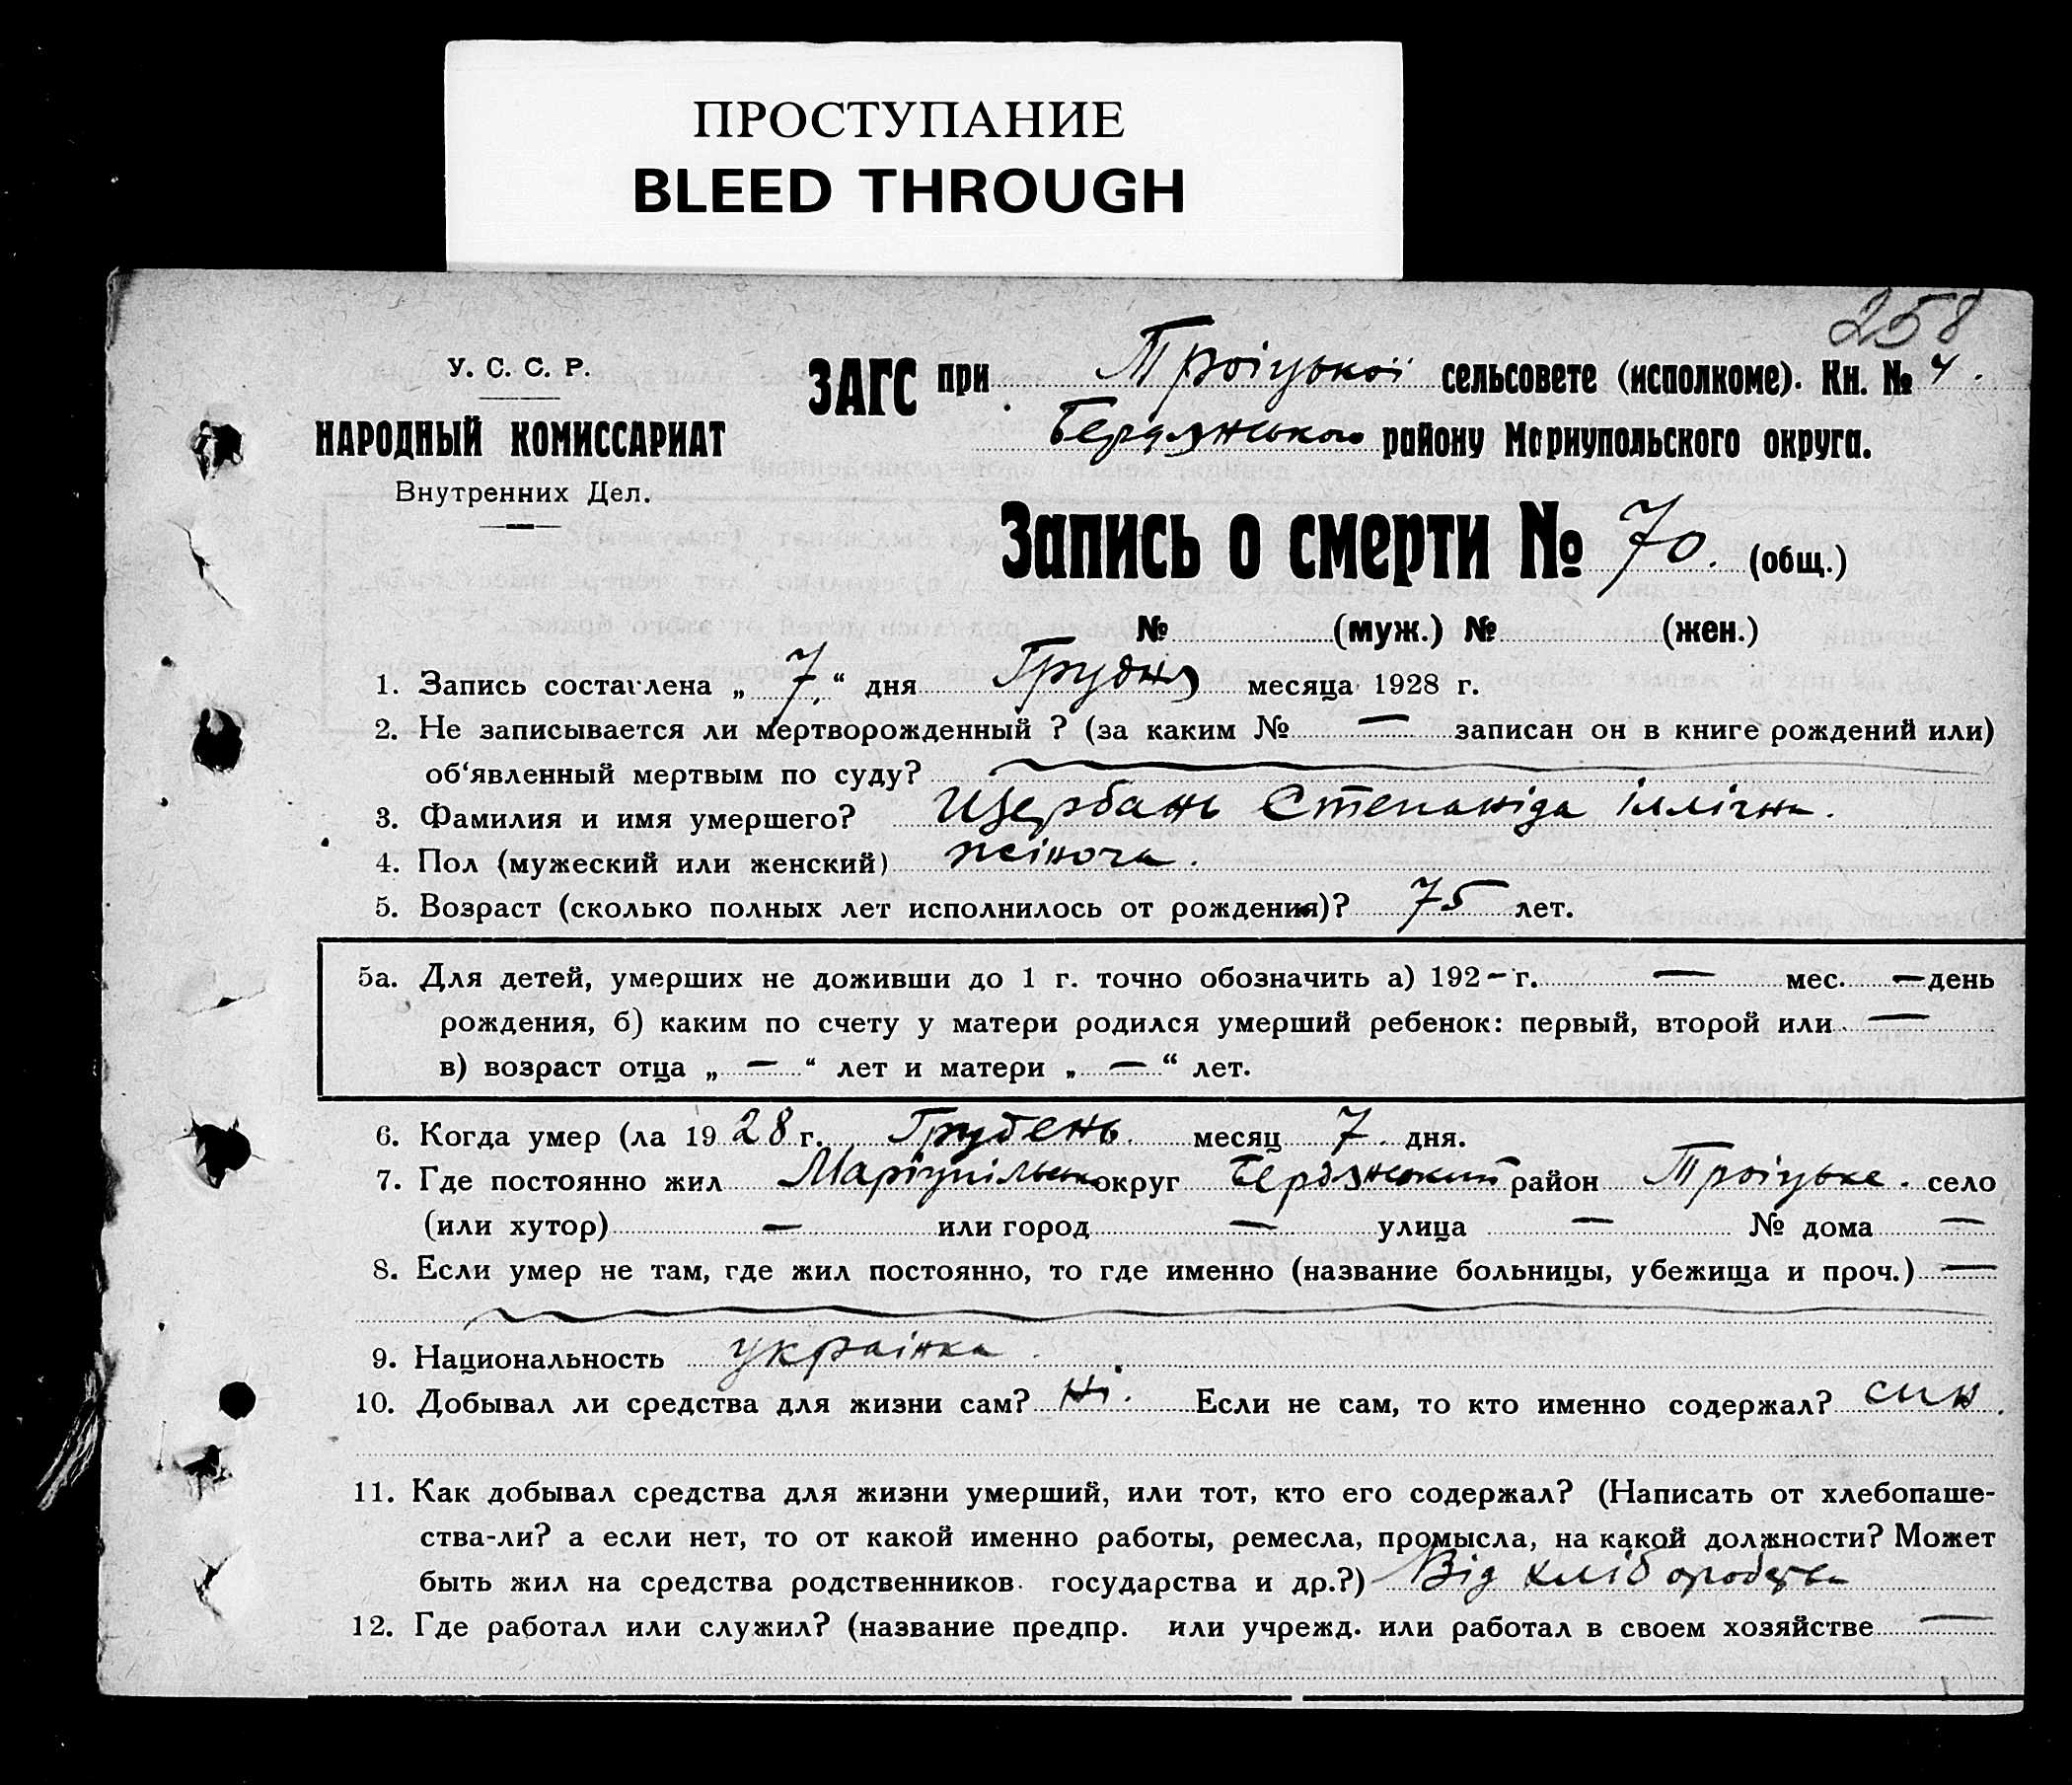 ПРОСТУПАНИЕ
BLEED THROUGH
258
У. С. С. Р.
НАРОДНЫЙ КОМИССАРИАТ
Внутренних Дел.
ЗАГС при Троіцької сельсовете (исполкоме). Кн. № 4.
Бердянського району Мариупольского округа.
Запись о смерти № 70. (общ.)
№ (муж.) № (жен.)
1. Запись составлена „ 7. “ дня Грудня месяца 1928 г.
2. Не записывается ли мертворожденный ? (за каким № — записан он в книге рождений или)
об‘явленный мертвым по суду?
3. Фамилия и имя умершего? Щербань Степаніда Іллічна.
4. Пол (мужеский или женский) жіноча.
5. Возраст (сколько полных лет исполнилось от рождения)? 75 лет.
5а. Для детей, умерших не доживши до 1 г. точно обозначить а) 192 — г. — мес. — день
рождения, б) каким по счету у матери родился умерший ребенок: первый, второй или —
в) возраст отца „ — “ лет и матери „ — “ лет.
6. Когда умер (ла 19 28 г. Грудень месяц 7. дня.
7. Где постоянно жил Маріупільськ округ Бердянський район Троіцьке. село
(или хутор) — или город — улица — № дома —
8. Если умер не там, где жил постоянно, то где именно (название больницы, убежища и проч.) —
9. Национальность украінка.
10. Добывал ли средства для жизни сам? Ні. Если не сам, то кто именно содержал? син.
11. Как добывал средства для жизни умерший, или тот, кто его содержал? (Написать от хлебопаше-
ства-ли? а если нет, то от какой именно работы, ремесла, промысла, на какой должности? Может
быть жил на средства родственников государства и др.?) Від хліборобства
12. Где работал или служил? (название предпр. или учрежд. или работал в своем хозяйстве —